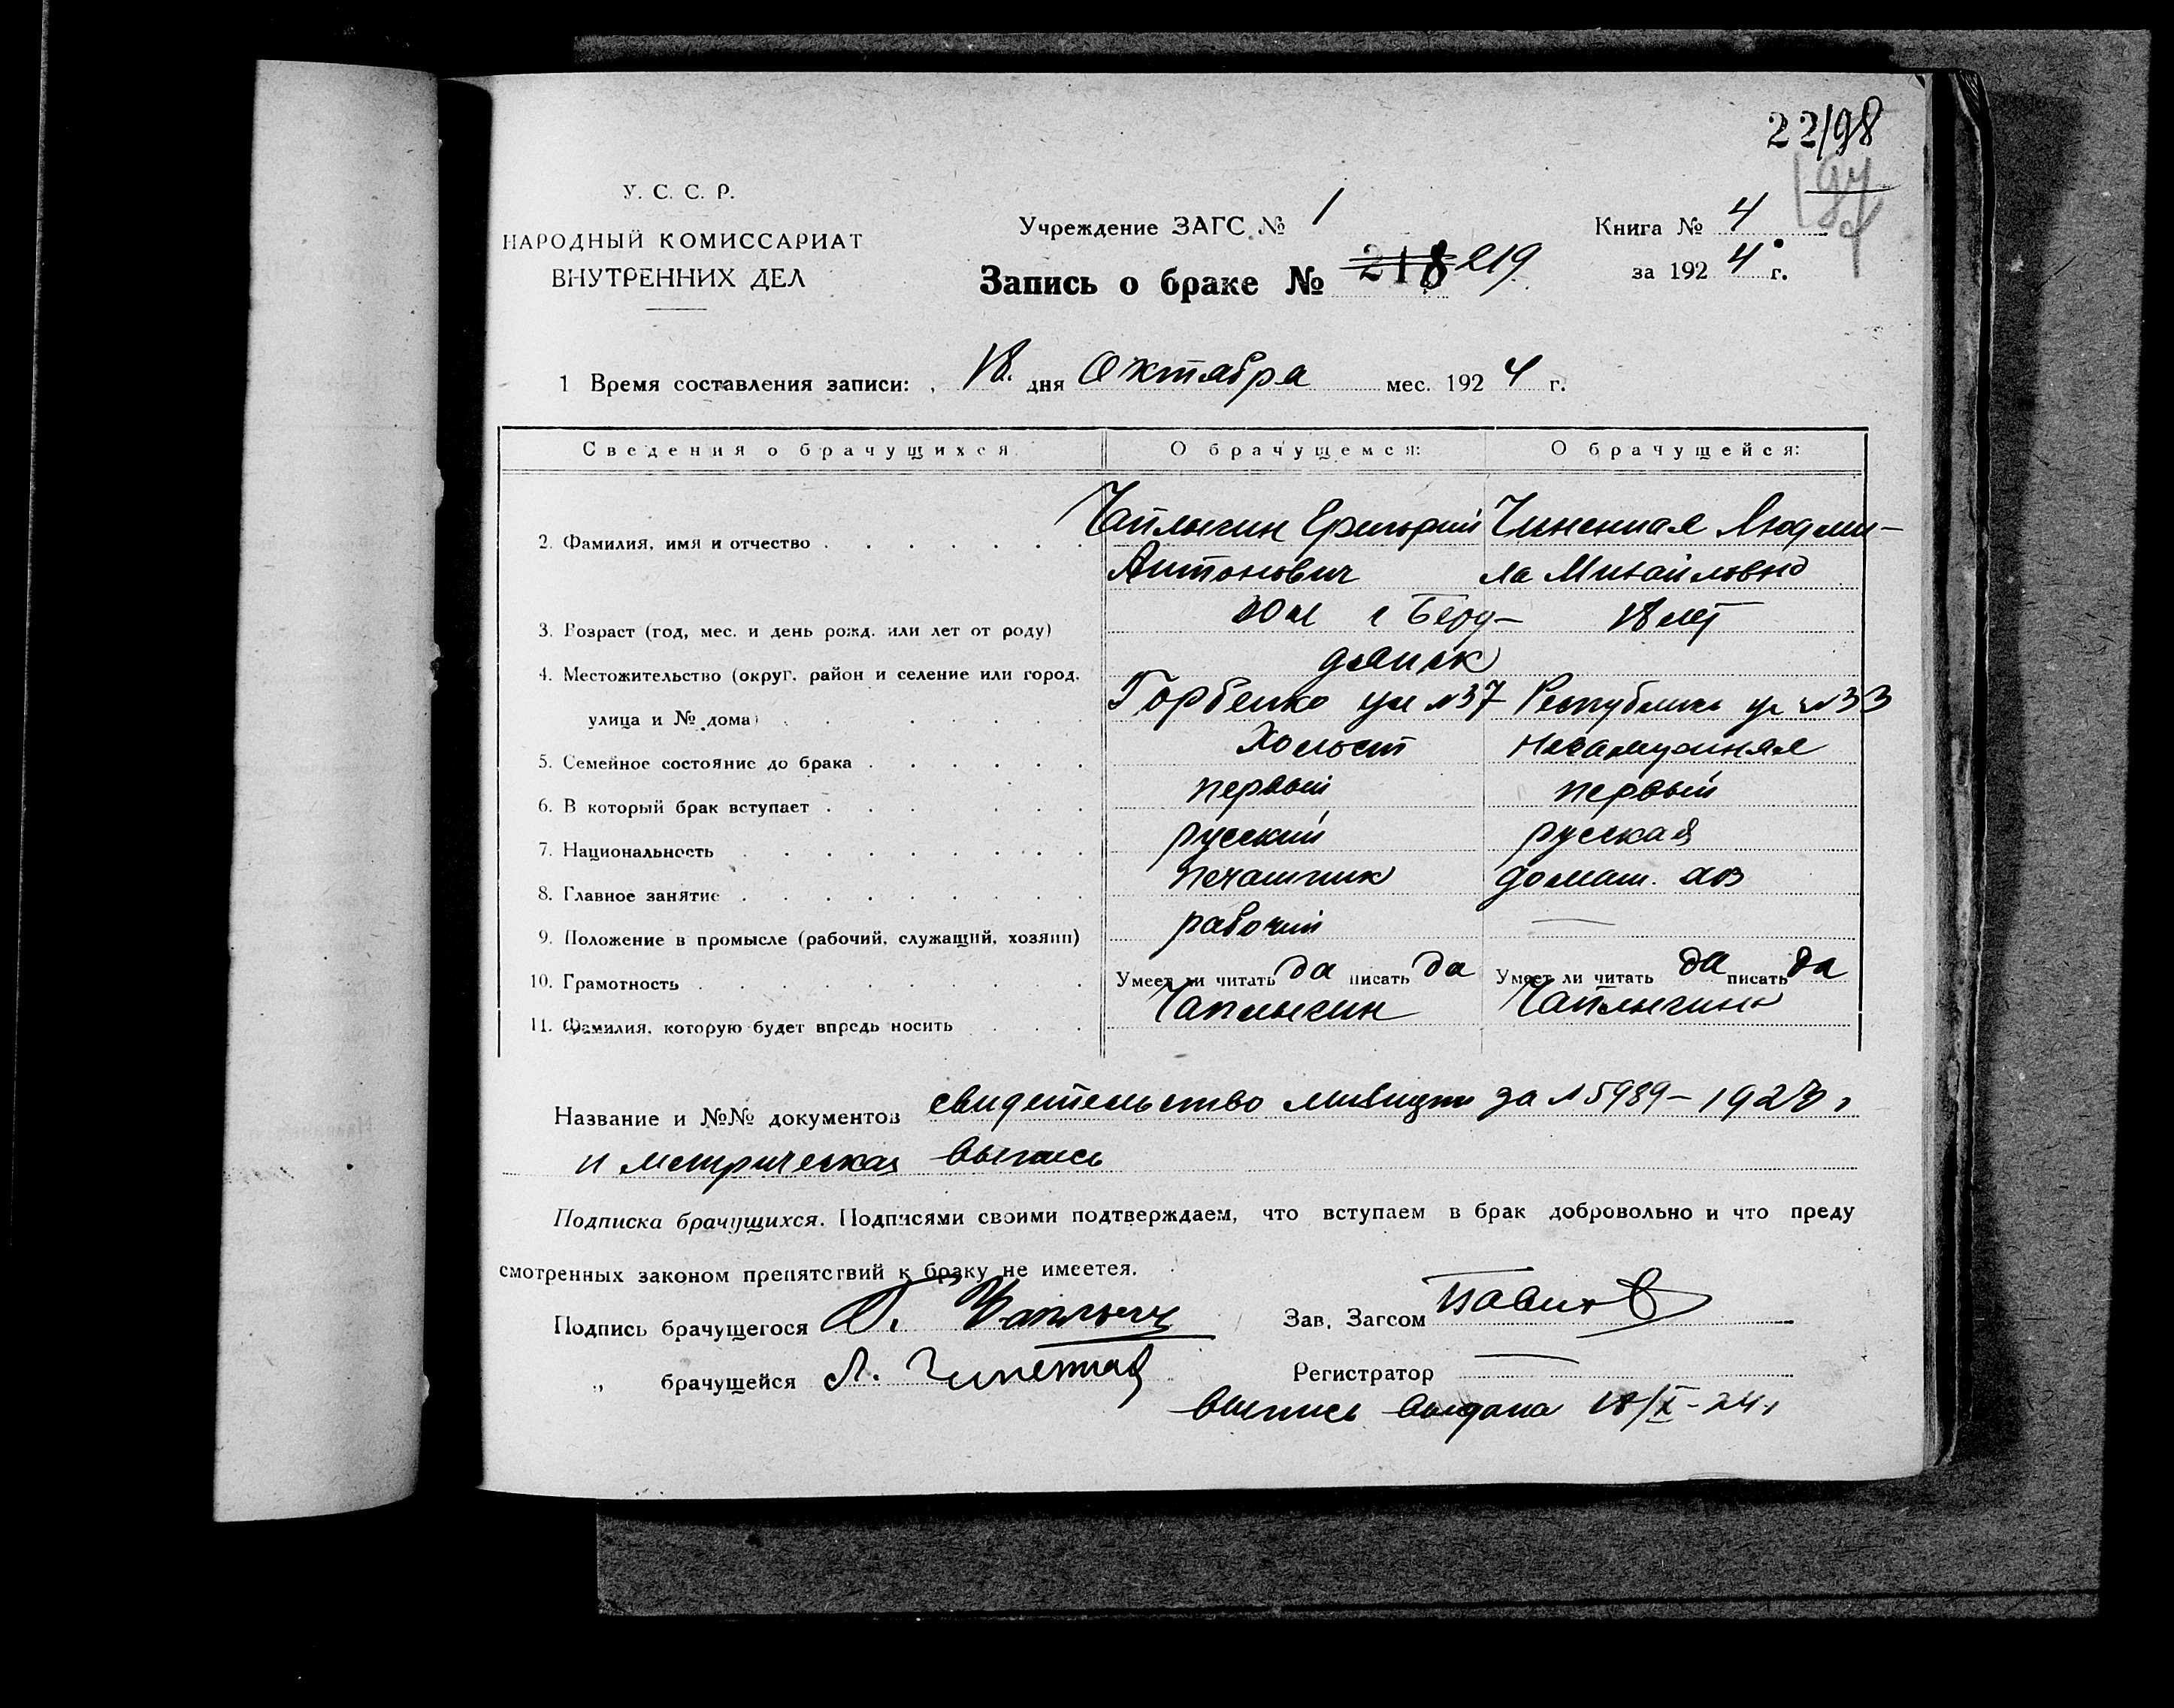 22/98
У. С. С. Р.
НАРОДНЫЙ КОМИССАРИАТ
ВНУТРЕННИХ ДЕЛ
Учреждение ЗАГС № 1
Запись о браке № 218 219
Книга № 4
за 192 4 г.
1 Время составления записи: 18. дня Октября мес. 192 4 г.
Сведения о брачущихся
О брачущемся:
О брачущейся:
2. Фамилия, имя и отчество
Чаплыгин Григорий
Антонович
Чиненная Людми-
ла Михайловна
3. Возраст (год, мес. и день рожд. или лет от роду)
г Берд-
18 лет
4. Местожительство (округ, район и селение или город,
улица и № дома)
дянск
Горбенко ул №37
Республики ул №33
5. Семейное состояние до брака
Холост
незамужняя
6. В который брак вступает
первый
первый
7. Национальность
русский
русская
8. Главное занятие
печатник
домаш. хоз
9. Положение в промысле (рабочий, служащий, хозяин)
рабочий
—
10. Грамотность
Умеет ли читать да писать да
Умеет ли читать да писать да
11. Фамилия, которую будет впредь носить
Чаплыгин
Чаплыгина
Название и №№ документов свидетельство милиции за №5989 –
и метрическая выпись
Подписка брачущихся. Подписями своими подтверждаем, что вступаем в брак добровольно и что преду
смотренных законом препятствий к браку не имеется.
Подпись брачущегося Г. Чаплыгин
Зав. Загсом
„ брачущейся Л. Чиненная
Регистратор —
выпись выдана 18/X-24г